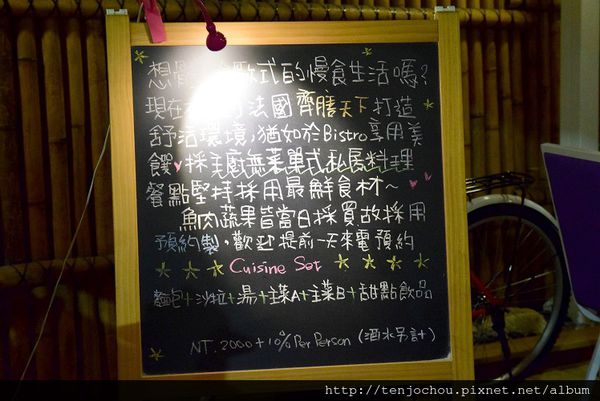 想 式的慢食生活嗎?
現在 法國齊膳天下打造
舒活環境,猶如於Bistro享用美
饌,採主廚無菜單式私房料理
餐點堅持採用最鮮食材~
魚肉蔬果皆當日採買故採用
預約製,歡迎提前一天來電預約
Cuisine Set
麵包+沙拉+湯+主菜A+主菜B+甜點飲品
NT. 2000 + 10% Per Person (酒水另計)
http://tenjochou.pixnet.net/album